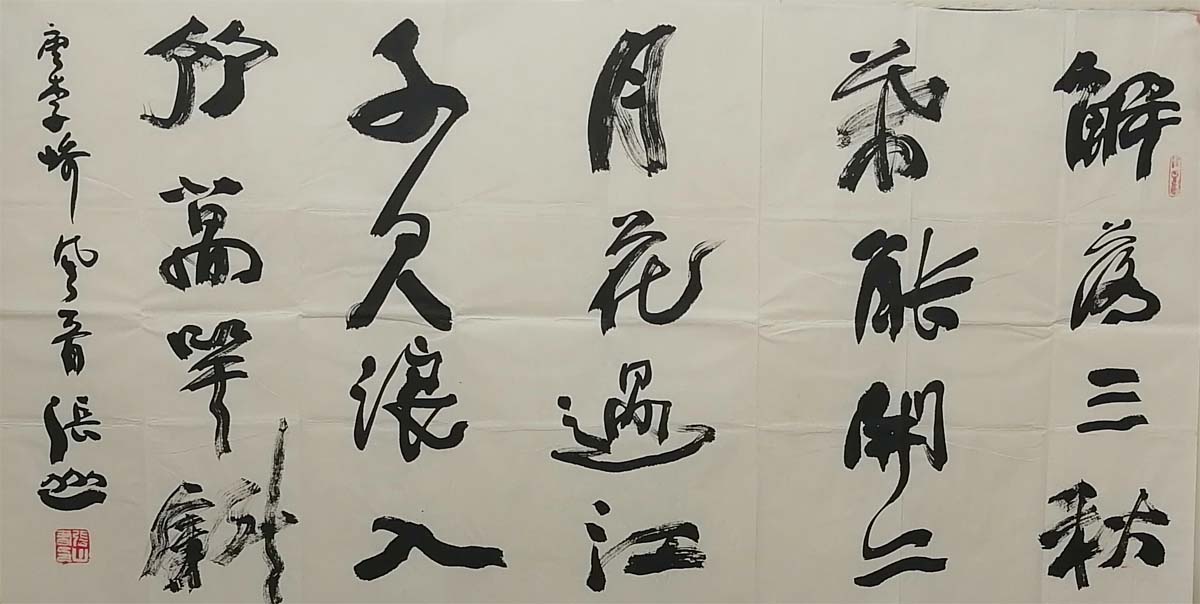 解落三秋
葉能開二
月花過江
千尺浪入
竹萬竿斜
唐李嶠風一首張